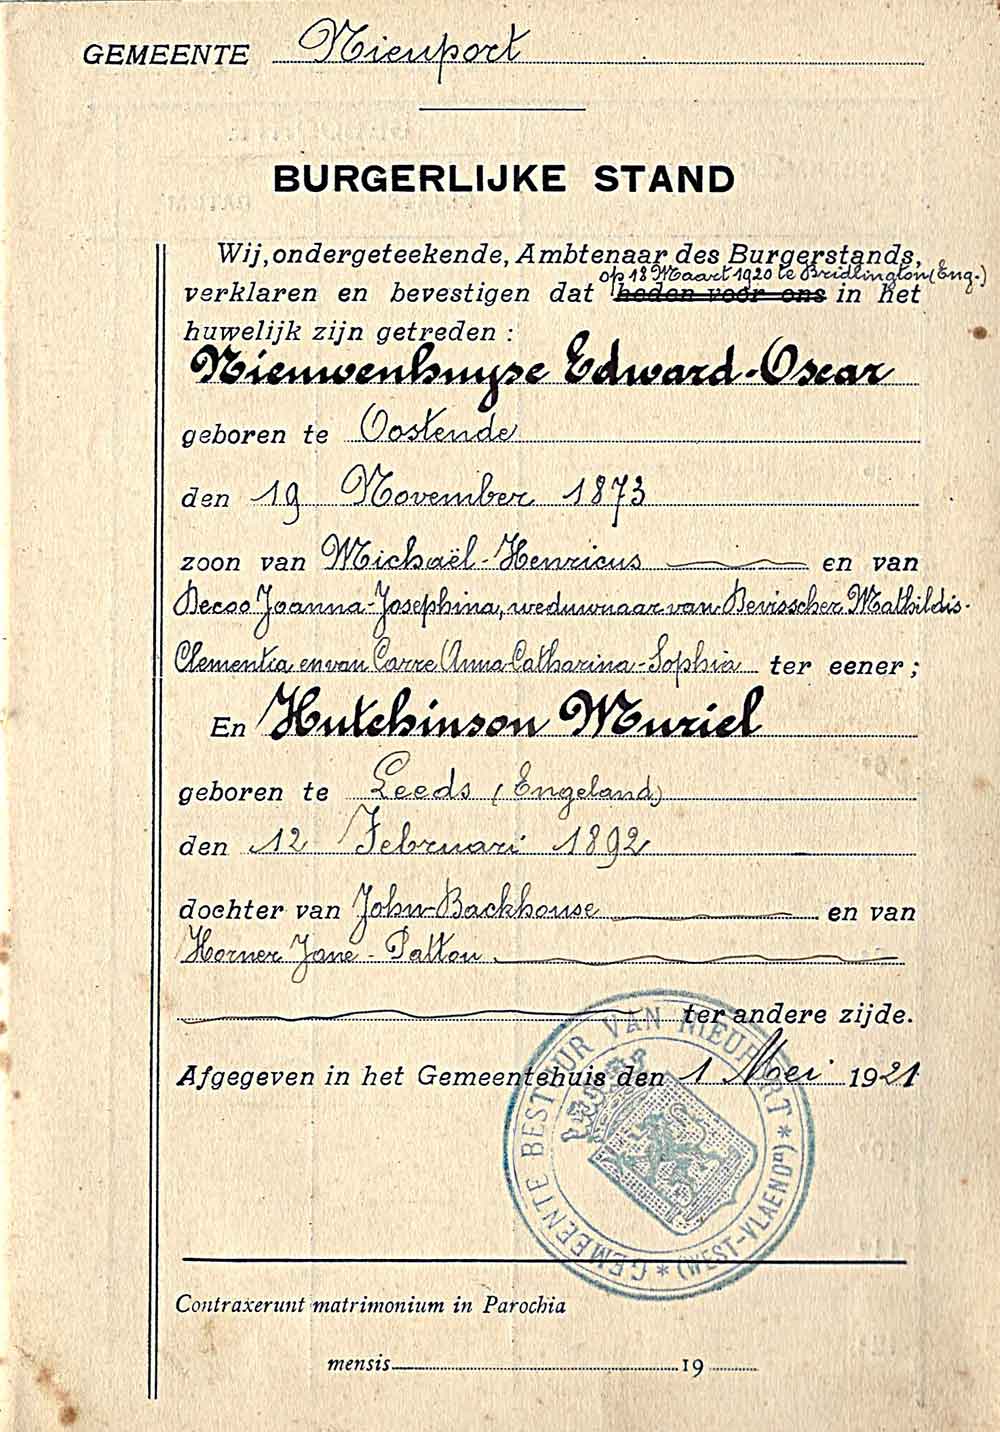 GEMEENTE Nieuport
BURGERLIJKE STAND
Wij, ondergeteekende, Ambtenaar des Burgerstands,
op 18 Maart 1920 te Bridlington (Eng.)
verklaren en bevestigen dat heden voor ons in het
huwelijk zijn getreden :
Nieuwenhuyse Edward-Oscar
geboren te Oostende
den 19 November 1873
zoon van Michaël-Henricus en van
Decoo Joanna-Josephina, weduwnaar van Devisscher Mathildis-
Clementia en van Carre Anna-Catharina-Sophia ter eener ;
En Hutchinson Muriel
geboren te Leeds (Engeland)
den 12 Februari 1892
dochter van John-Backhouse en van
Horner Jane-Patton
ter andere zijde.
Afgegeven in het Gemeentehuis den 1 Mei 1921
GEMEENTE BESTUUR VAN NIEUPORT * (WEST-VLAENDn) *
Contraxerunt matrimonium in Parochia
mensis 19